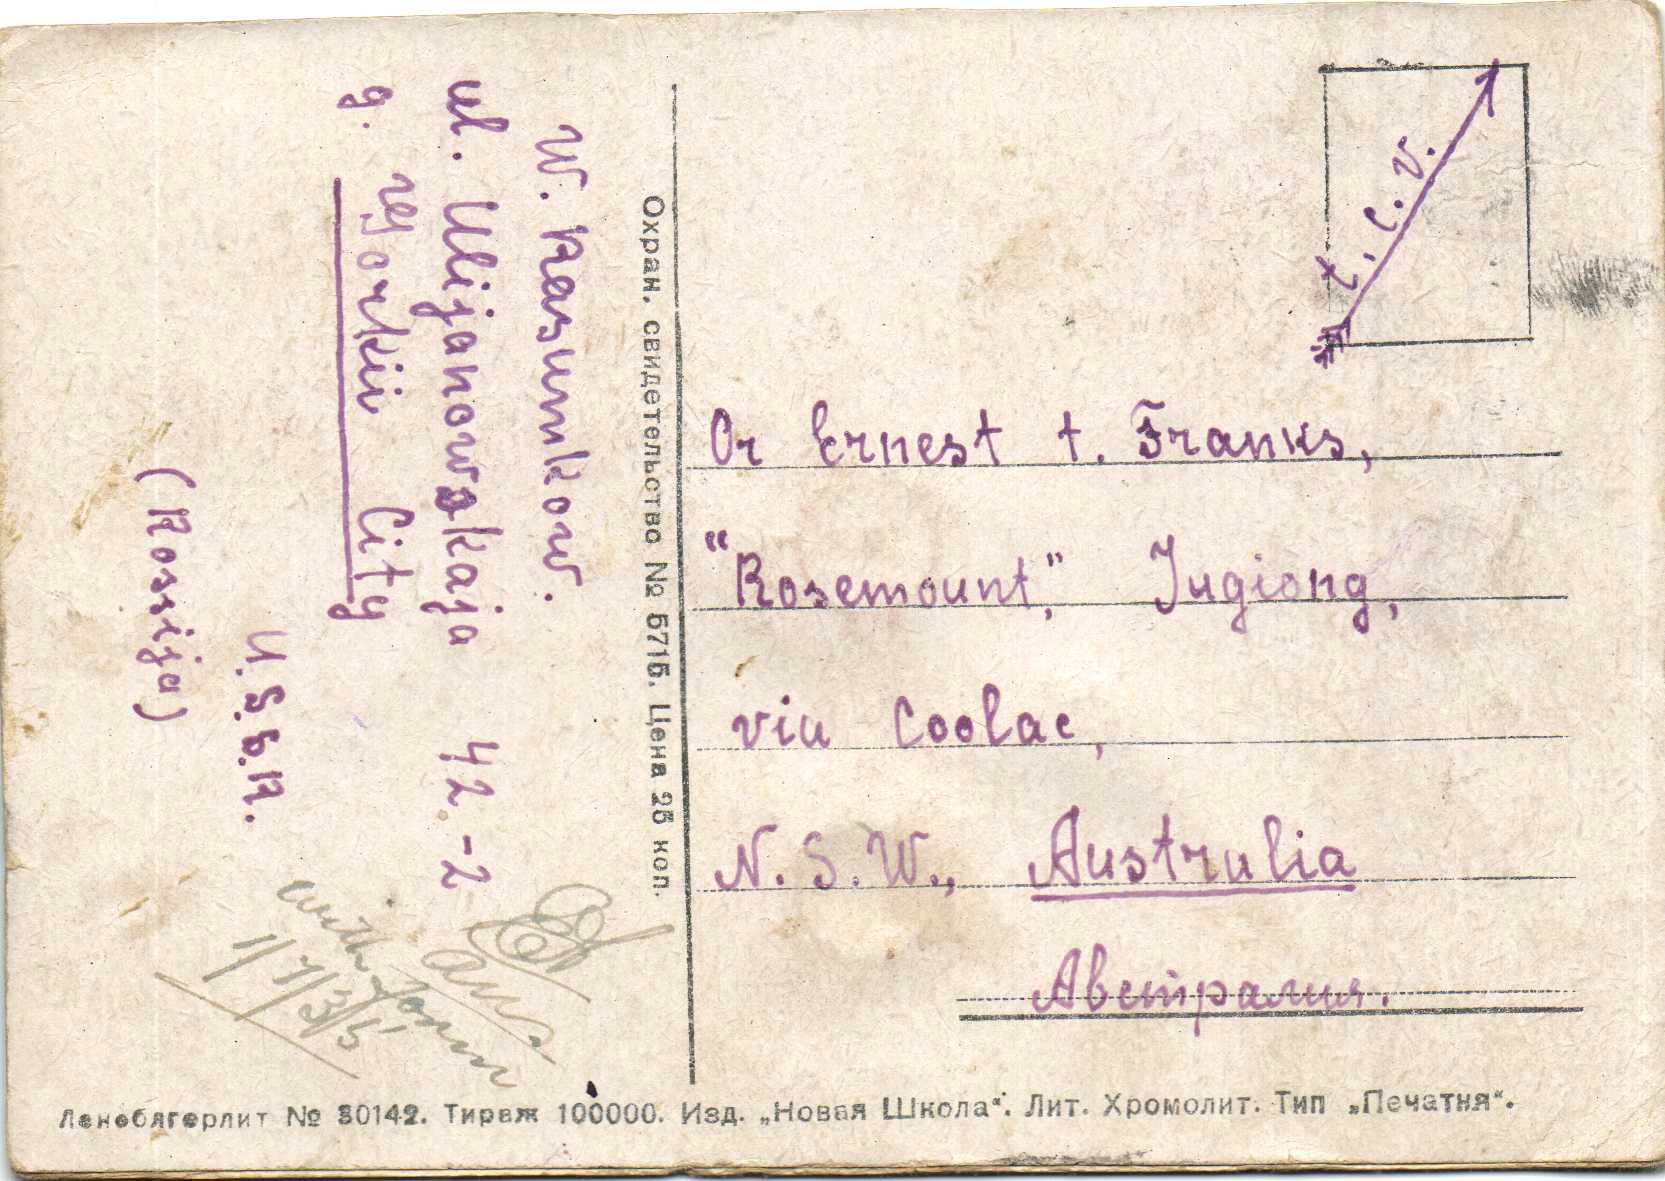 t. c. v.
Or Ernest t. Franks,
"Rosemount", Jugiong,
via Coolac,
N. S. W., Australia
Австралия.
Охран. свидетельство № 5715. Цена 25 коп.
W. Rasumkow.
ul. Uljanowskaja 42-2
g. Gorkii City
U.S.S.R.
(Rossija)
Ans
with
1/7/35
Леноблгорлит № 30142. Тираж 100000. Изд. „Новая Школа“. Лит. Хромолит. Тип „Печатня“.